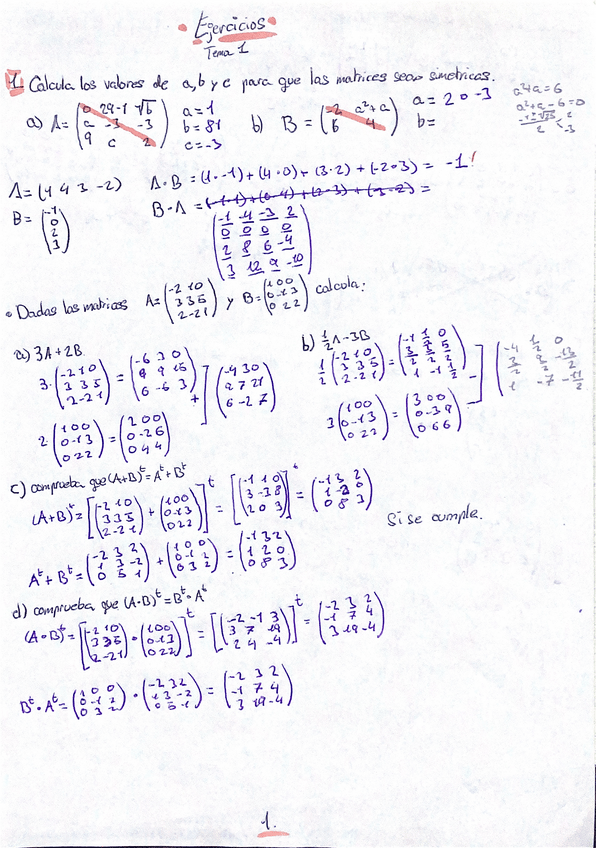 Ejercicios
Tema 1
1. Calcula los valores de a, b y c para que las matrices sean simetricas.
a) A = (0 2a-1 √b / a -3 -3 / 9 c 2) a=1 b=81 c=-3
b) B = (-2 a²+a / 6 4) a= 2 o -3 b=
a²+a=6
a²+a-6=0
2
-3
A = (1 4 3 -2) A·B = (1·-1)+(4·0)+(3·2)+(-2·3) = -1!
B = (-1 / 0 / 2 / 3) B·A = (-1·1)+(0·4)+(2·3)+(3·-2) =
(-1 -4 -3 2 / 0 0 0 0 / 2 8 6 -4 / 3 12 9 -10)
• Dadas las matrices A = (-2 1 0 / 3 3 5 / 2 -2 1) y B = (1 0 0 / 0 -1 3 / 0 2 2) calcula:
a) 3A+2B
3·(-2 1 0 / 3 3 5 / 2 -2 1) = (-6 3 0 / 9 9 15 / 6 -6 3)
+ ] (-4 3 0 / 9 7 21 / 6 -2 7)
2(1 0 0 / 0 -1 3 / 0 2 2) = (2 0 0 / 0 -2 6 / 0 4 4)
b) ½A-3B
½(-2 1 0 / 3 3 5 / 2 -2 1) = (-1 ½ 0 / 3/2 3/2 5/2 / 1 -1 ½)
- ] (-4 ½ 0 / 3/2 9/2 -13/2 / 1 -7 -11/2)
3(1 0 0 / 0 -1 3 / 0 2 2) = (3 0 0 / 0 -3 9 / 0 6 6)
c) comprueba que (A+B)ᵗ = Aᵗ+Bᵗ
(A+B)ᵗ = [(-2 1 0 / 3 3 5 / 2 -2 1) + (1 0 0 / 0 -1 3 / 0 2 2)]ᵗ = [(-1 1 0 / 3 -3 8 / 2 0 3)]ᵗ = (-1 3 2 / 1 -2 0 / 0 8 3)
Si se cumple.
Aᵗ+Bᵗ = (-2 3 2 / 1 3 -2 / 0 5 1) + (1 0 0 / 0 -1 2 / 0 3 2) = (-1 3 2 / 1 2 0 / 0 8 3)
d) comprueba que (A·B)ᵗ = Bᵗ·Aᵗ
(A·B)ᵗ = [(-2 1 0 / 3 3 5 / 2 -2 1) · (1 0 0 / 0 -1 3 / 0 2 2)]ᵗ = [(-2 -1 3 / 3 7 19 / 2 4 -4)]ᵗ = (-2 3 2 / -1 7 4 / 3 19 -4)
Bᵗ·Aᵗ = (1 0 0 / 0 -1 2 / 0 3 2) · (-2 3 2 / 1 3 -2 / 0 5 1) = (-2 3 2 / -1 7 4 / 3 19 -4)
1.